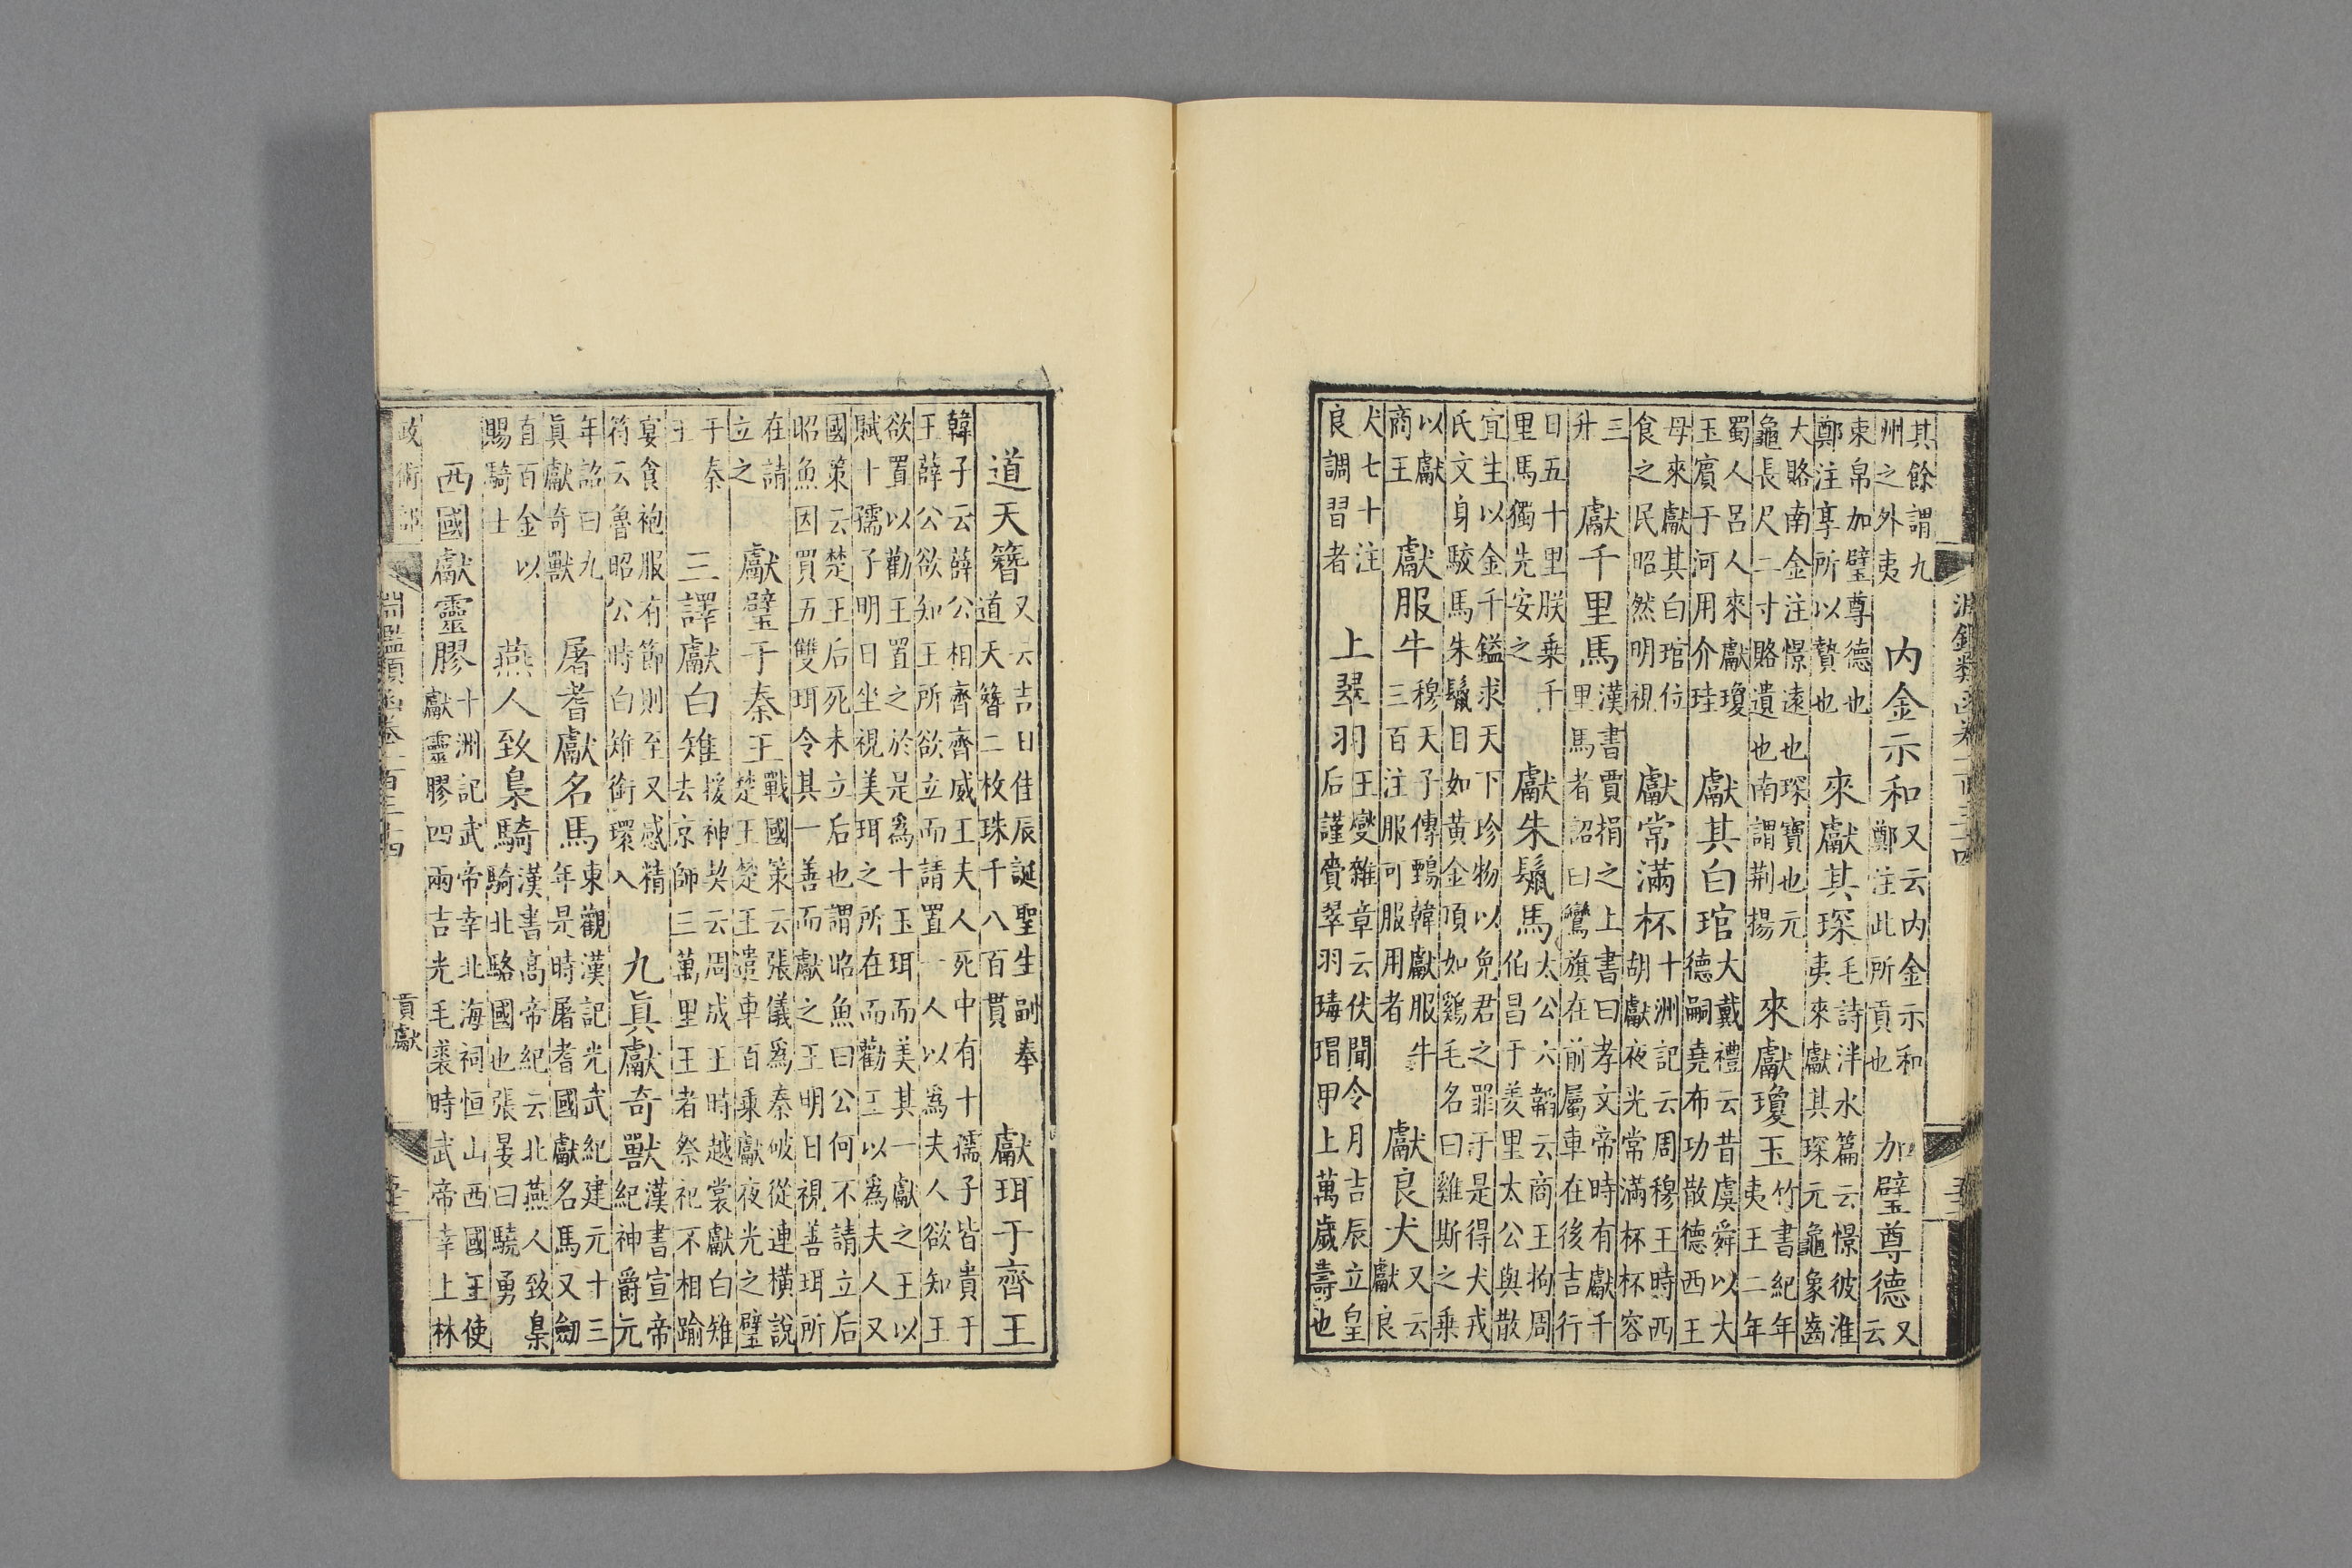 淵鑑類函卷一百三十四
其餘謂九州之外夷　内金示和　又云内金示和鄭注此所貢也　加璧尊德　又云
束帛加璧尊德也鄭注享所以贄也　來獻其琛　毛詩泮水篇云憬彼淮夷來獻其琛元龜象齒
大賂南金注憬遠也琛寶也元龜長尺二寸賂遺也南謂荆揚　來獻瓊玉　竹書紀年夷王二年
蜀人呂人來獻瓊玉賓于河用介珪　獻其白琯　大戴禮云昔虞舜以大德嗣堯布功散德西王
母來獻其白琯位食之民昭然明視　獻常滿杯　十洲記云周穆王時西胡獻夜光常滿杯杯容
三升　獻千里馬　漢書賈捐之上書曰孝文帝時有獻千里馬者詔曰鸞旗在前屬車在後吉行
日五十里朕乗千里馬獨先安之　獻朱鬣馬　太公六韜云商王拘周伯昌于羑里太公與散
宜生以金千鎰求天下珍物以免君之罪于是得犬戎氏文身駮馬朱鬣目如黃金項如雞毛名曰雞斯之乗
以獻商王　獻服牛　穆天子傳鵄韓獻服牛三百注服可服用者　獻良犬　又云獻良
犬七十注良調習者　上翠羽　王燮雜章云伏聞令月吉辰立皇后謹賫翠羽瑇瑁甲上萬歲壽也
道天簪　又云吉日佳辰誕聖生副奉道天簪二枚珠千八百貫　獻珥于齊王
韓子云薛公相齊齊威王夫人死中有十孺子皆貴于王薛公欲知王所欲立而請置一人以爲夫人欲知王
欲置以勸王置之於是爲十玉珥而美其一獻之王以賦十孺子明日坐視美珥之所在而勸王以爲夫人又
國策云楚王后死未立后也謂昭魚曰公何不請立后昭魚因買五雙珥令其一善而獻之王明日視善珥所
在請立之　獻璧于秦王　戰國策云張儀爲秦破從連橫說楚王楚王遣車百乗獻夜光之璧
于秦王　三譯獻白雉　援神契云周成王時越裳獻白雉去京師三萬里王者祭祀不相踰
宴食袍服有節則至又感精符云魯昭公時白雉銜環入　九眞獻奇獸　漢書宣帝紀神爵元
年詔曰九眞獻奇獸　屠耆獻名馬　東觀漢記光武紀建元十三年是時屠耆國獻名馬又劒
直百金以賜騎士　燕人致梟騎　漢書高帝紀云北燕人致梟騎北貉國也張晏曰驍勇
西國獻靈膠　十洲記武帝幸北海祠恒山西國王使獻靈膠四兩吉光毛裘時武帝幸上林
政術部　淵鑑類函卷一百三十四　貢獻